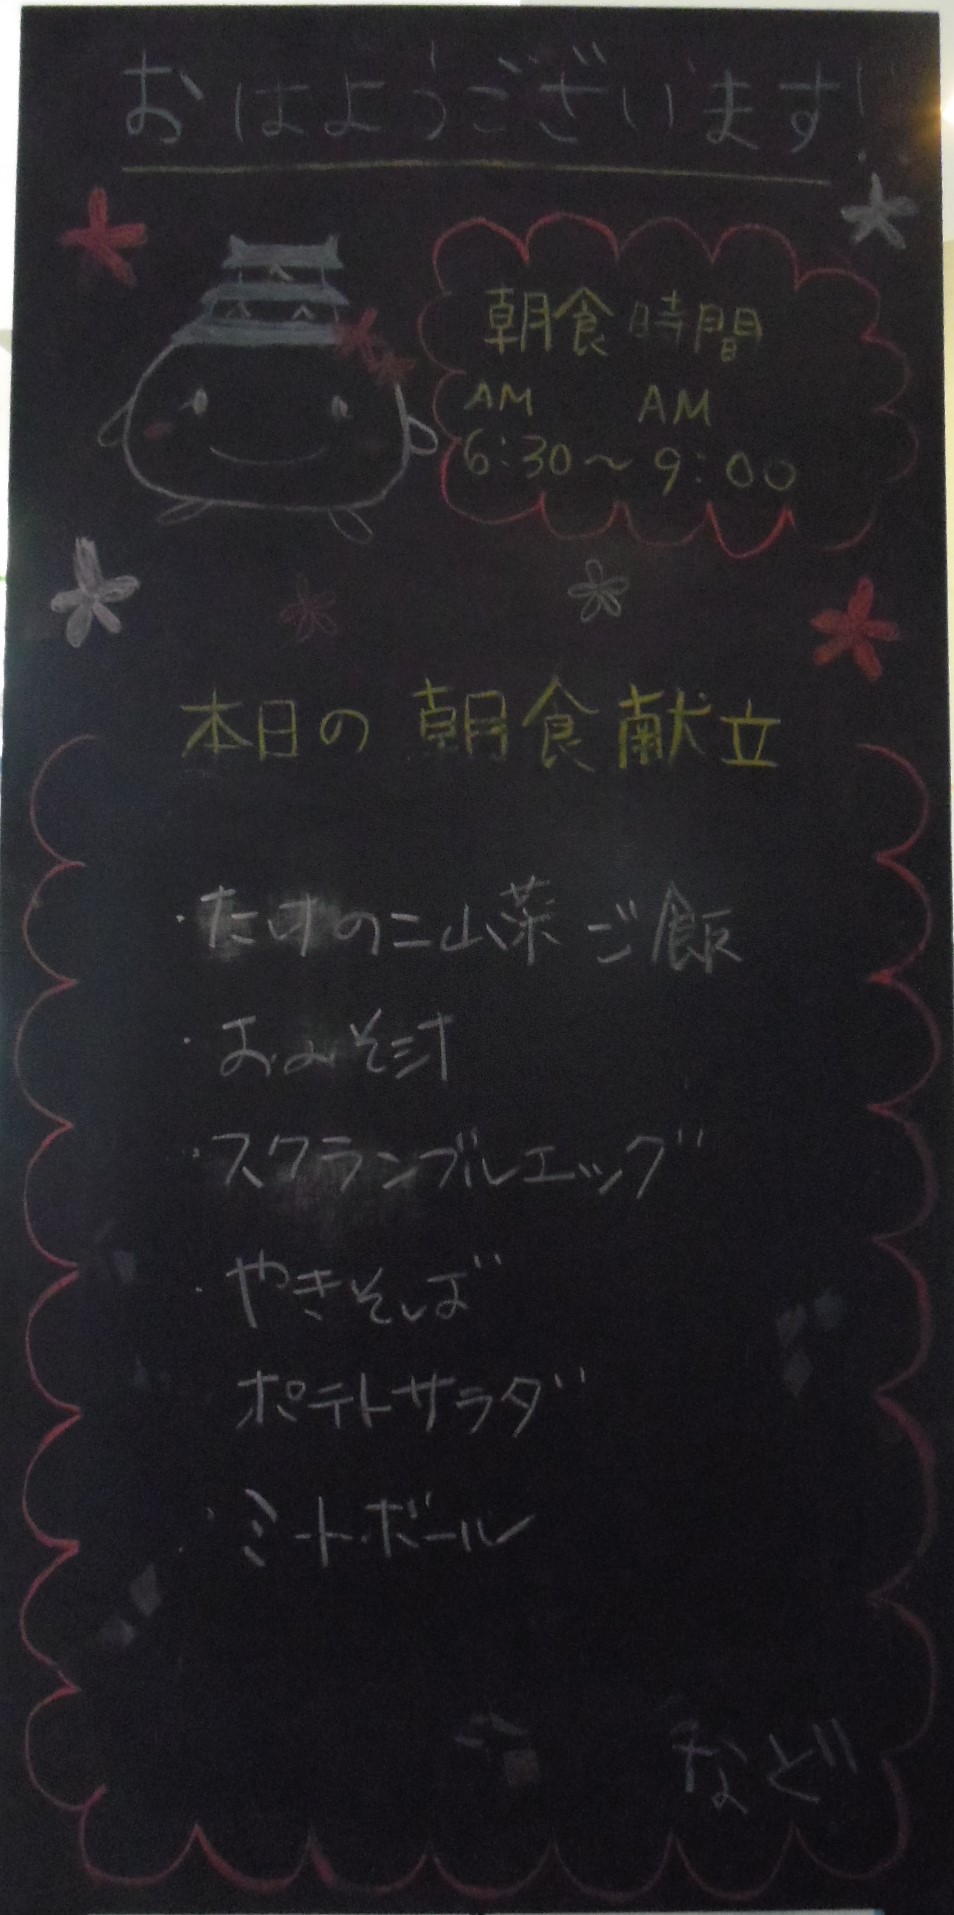 おはようございます!
朝食時間
AM AM
6:30~9:00
本日の朝食献立
・たけのこ山菜ご飯
・おみそ汁
・スクランブルエッグ
・やきそば
ポテトサラダ
・ミートボール
など